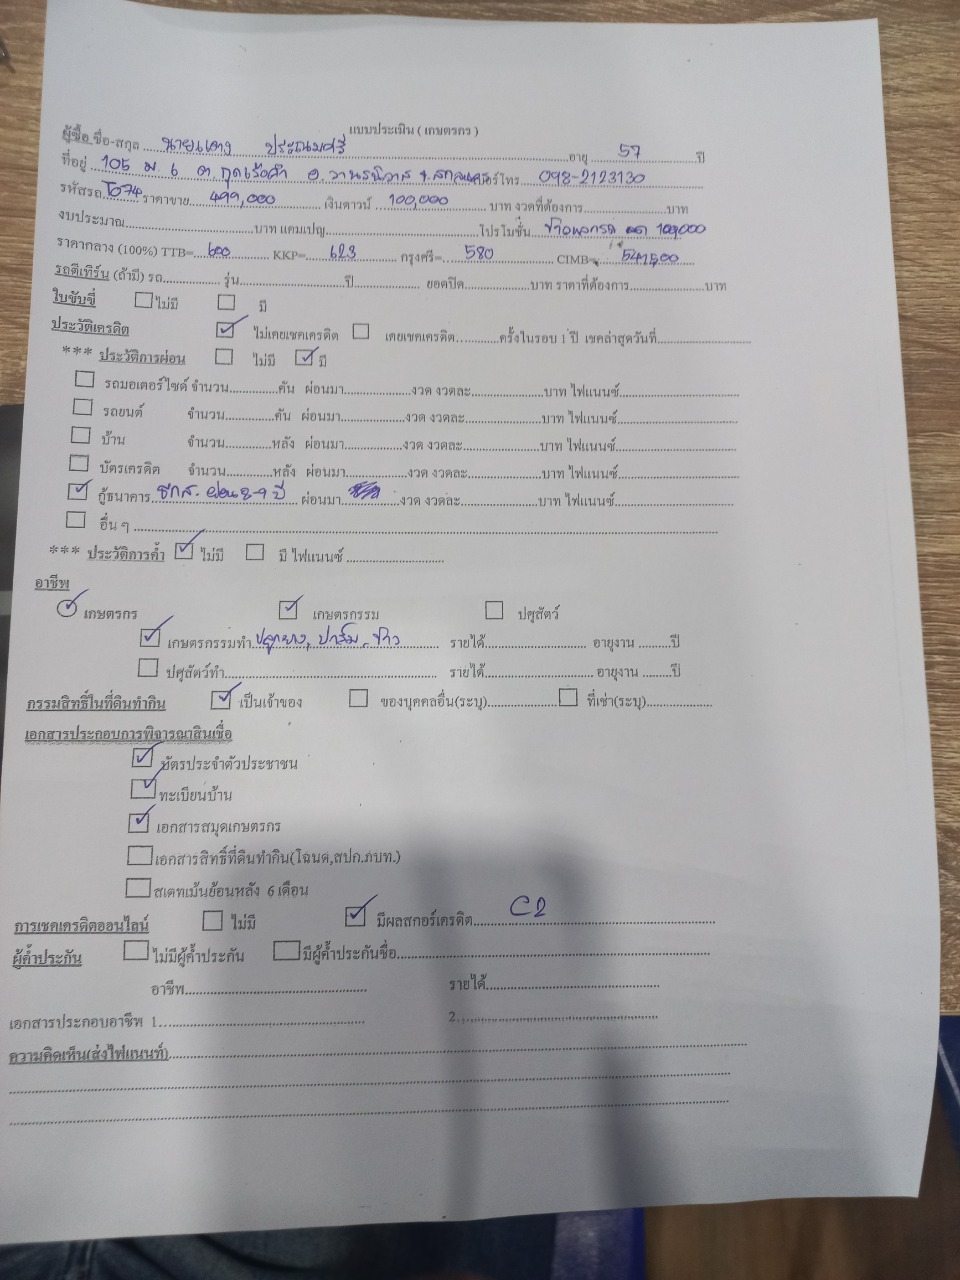 แบบประเมิน ( เกษตรกร )
ผู้ซื้อ ชื่อ-สกุล นายแดง ประณมศรี อายุ 57 ปี
ที่อยู่ 105 ม. 6 ต. กุดเรือคำ อ. วานรนิวาส จ. สกลนคร เบอร์โทร 098-2123130
รหัสรถ TO74 ราคาขาย 499,000 เงินดาวน์ 100,000 บาท งวดที่ต้องการ บาท
งบประมาณ บาท แคมเปญ โปรโมชั่น ลด 100,000
ราคากลาง (100%) TTB= 600 KKP= 623 กรุงศรี= 580 CIMB=
รถตีเทิร์น (ถ้ามี) รถ รุ่น ปี ยอดปิด บาท ราคาที่ต้องการ บาท
ใบขับขี่ ไม่มี มี
ประวัติเครดิต ไม่เคยเชคเครดิต เคยเชคเครดิต ครั้งในรอบ 1 ปี เชคล่าสุดวันที่
*** ประวัติการผ่อน ไม่มี มี
รถมอเตอร์ไซด์ จำนวน คัน ผ่อนมา งวด งวดละ บาท ไฟแนนซ์
รถยนต์ จำนวน คัน ผ่อนมา งวด งวดละ บาท ไฟแนนซ์
บ้าน จำนวน หลัง ผ่อนมา งวด งวดละ บาท ไฟแนนซ์
บัตรเครดิต จำนวน หลัง ผ่อนมา งวด งวดละ บาท ไฟแนนซ์
กู้ธนาคาร ธกส. ผ่อน 8-9 ปี ผ่อนมา งวด งวดละ บาท ไฟแนนซ์
อื่น ๆ
*** ประวัติการค้ำ ไม่มี มี ไฟแนนซ์
อาชีพ
เกษตกร เกษตกรรม ปศุสัตว์
เกษตกรรมทำ ปลูกยาง, ปาร์ม, ข้าว รายได้ อายุงาน ปี
ปศุสัตว์ทำ รายได้ อายุงาน ปี
กรรมสิทธิ์ในที่ดินทำกิน เป็นเจ้าของ ของบุคคลอื่น(ระบุ) ที่เช่า(ระบุ)
เอกสารประกอบการพิจารณาสินเชื่อ
บัตรประจำตัวประชาชน
ทะเบียนบ้าน
เอกสารสมุดเกษตรกร
เอกสารสิทธิ์ที่ดินทำกิน(โฉนด,สปก.ภบท.)
สเตทเม้นย้อนหลัง 6 เดือน
การเชคเครดิตออนไลน์ ไม่มี มีผลสกอร์เครดิต C2
ผู้ค้ำประกัน ไม่มีผู้ค้ำประกัน มีผู้ค้ำประกันชื่อ
อาชีพ รายได้
เอกสารประกอบอาชีพ 1. 2.
ความคิดเห็น(ส่งไฟแนนท์)